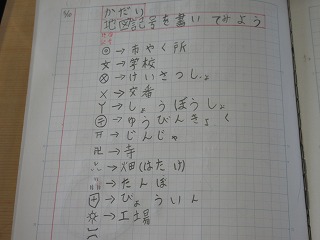 かだい
地図記号を書いてみよう
◎→市やく所
文→学校
⊗→けいさつしょ
X→交番
Y→しょうぼうしょ
〒→ゆうびんきょく
⛩→じんじゃ
卍→寺
→畑(はたけ)
→たんぼ
→びょういん
→工場